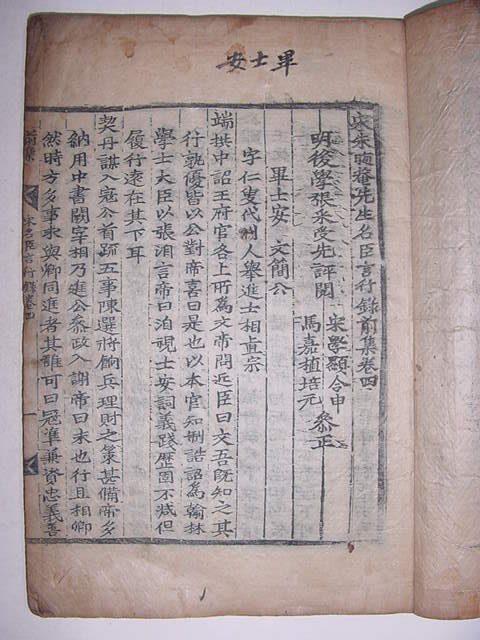 畢士安
宋朱晦菴先生名臣言行錄前集卷四
明後學張采受先評閱
宋學顯令申
馬嘉植培元
叅正
畢士安 文簡公
字仁叟代州人舉進士相真宗
端拱中詔王府官各上所為文帝問近臣曰文吾既知之其
行孰優皆以公對帝喜曰是也以本官知制誥詔為翰林
學士大臣以張洎言帝曰洎視士安詞義踐歷固不減但
履行遠在其下耳
契丹謀入寇公首疏五事陳選將餉兵理財之策甚備帝多
納用中書闕宰相乃進公叅政入謝帝曰未也行且相卿
然時方多事求與卿同進者其誰可曰冦準兼資忠義善
前集
宋名臣言行錄卷四